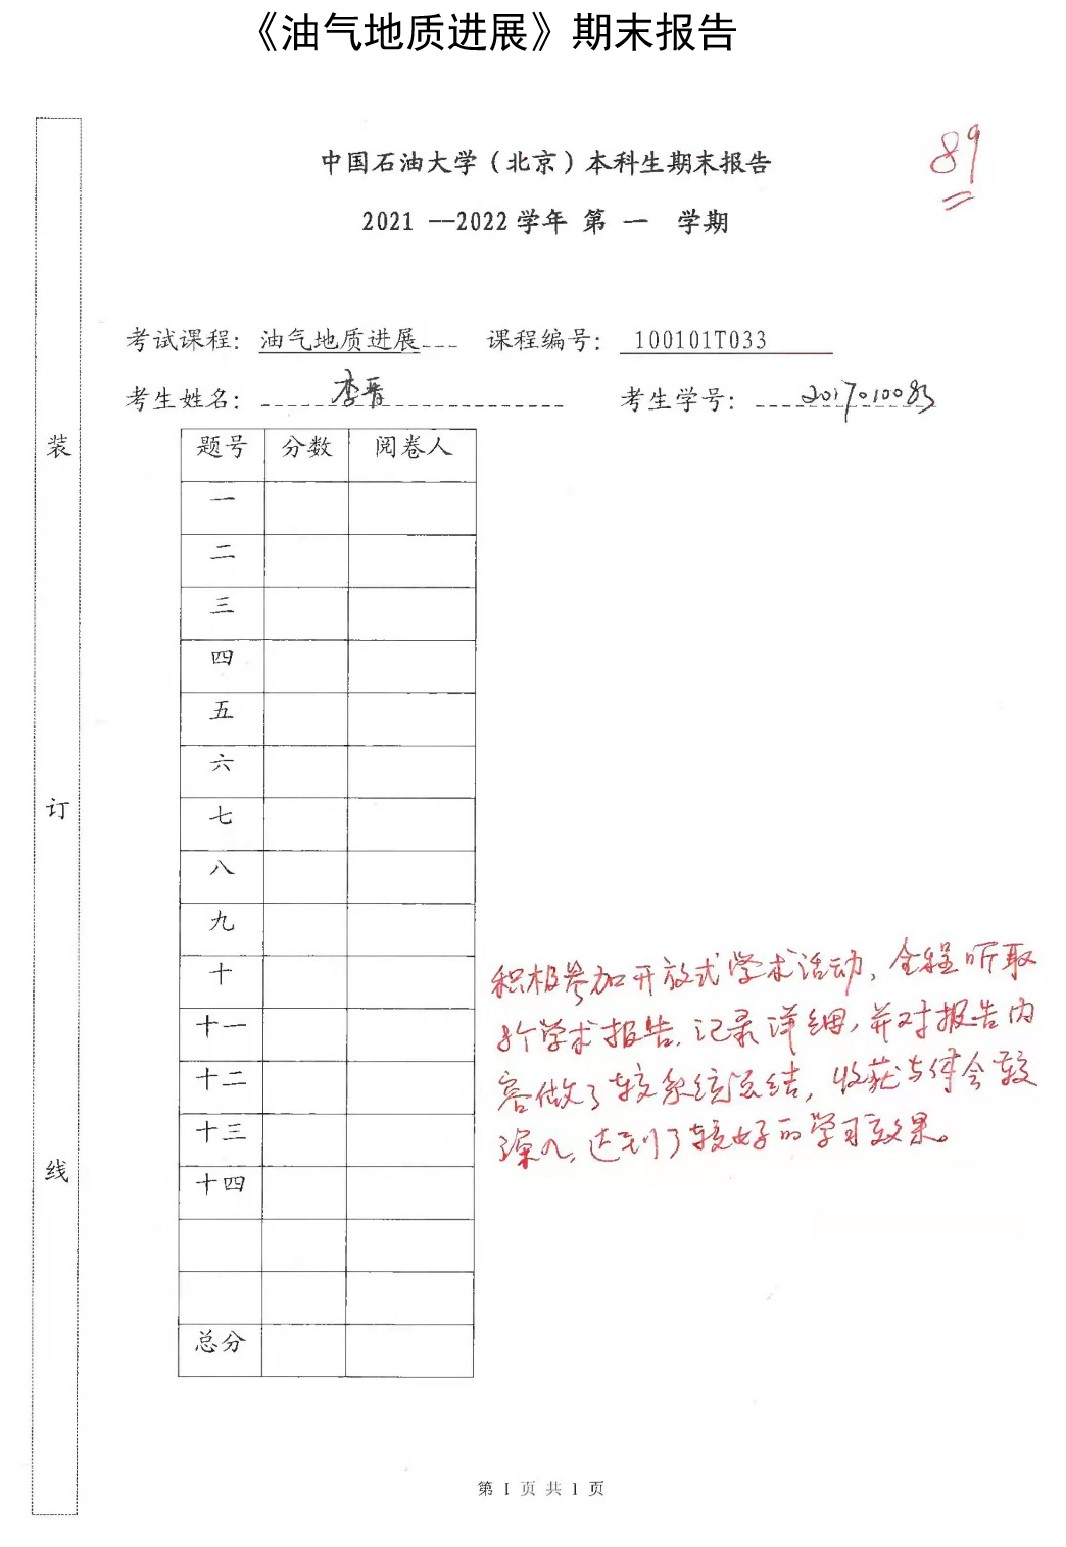 《油气地质进展》期末报告
89
中国石油大学（北京）本科生期末报告
2021 --2022 学年 第 一 学期
考试课程: 油气地质进展 课程编号: 100101T033
考生姓名: 李晋 考生学号: 2017010083
题号 分数 阅卷人
一
二
三
四
五
六
七
八
九
十
十一
十二
十三
十四
总分
积极参加开放式学术活动, 全程听取
8个学术报告, 记录详细, 并对报告内
容做了较系统总结, 收获与体会较
深入, 达到了较好的学习效果。
装
订
线
第 1 页 共 1 页